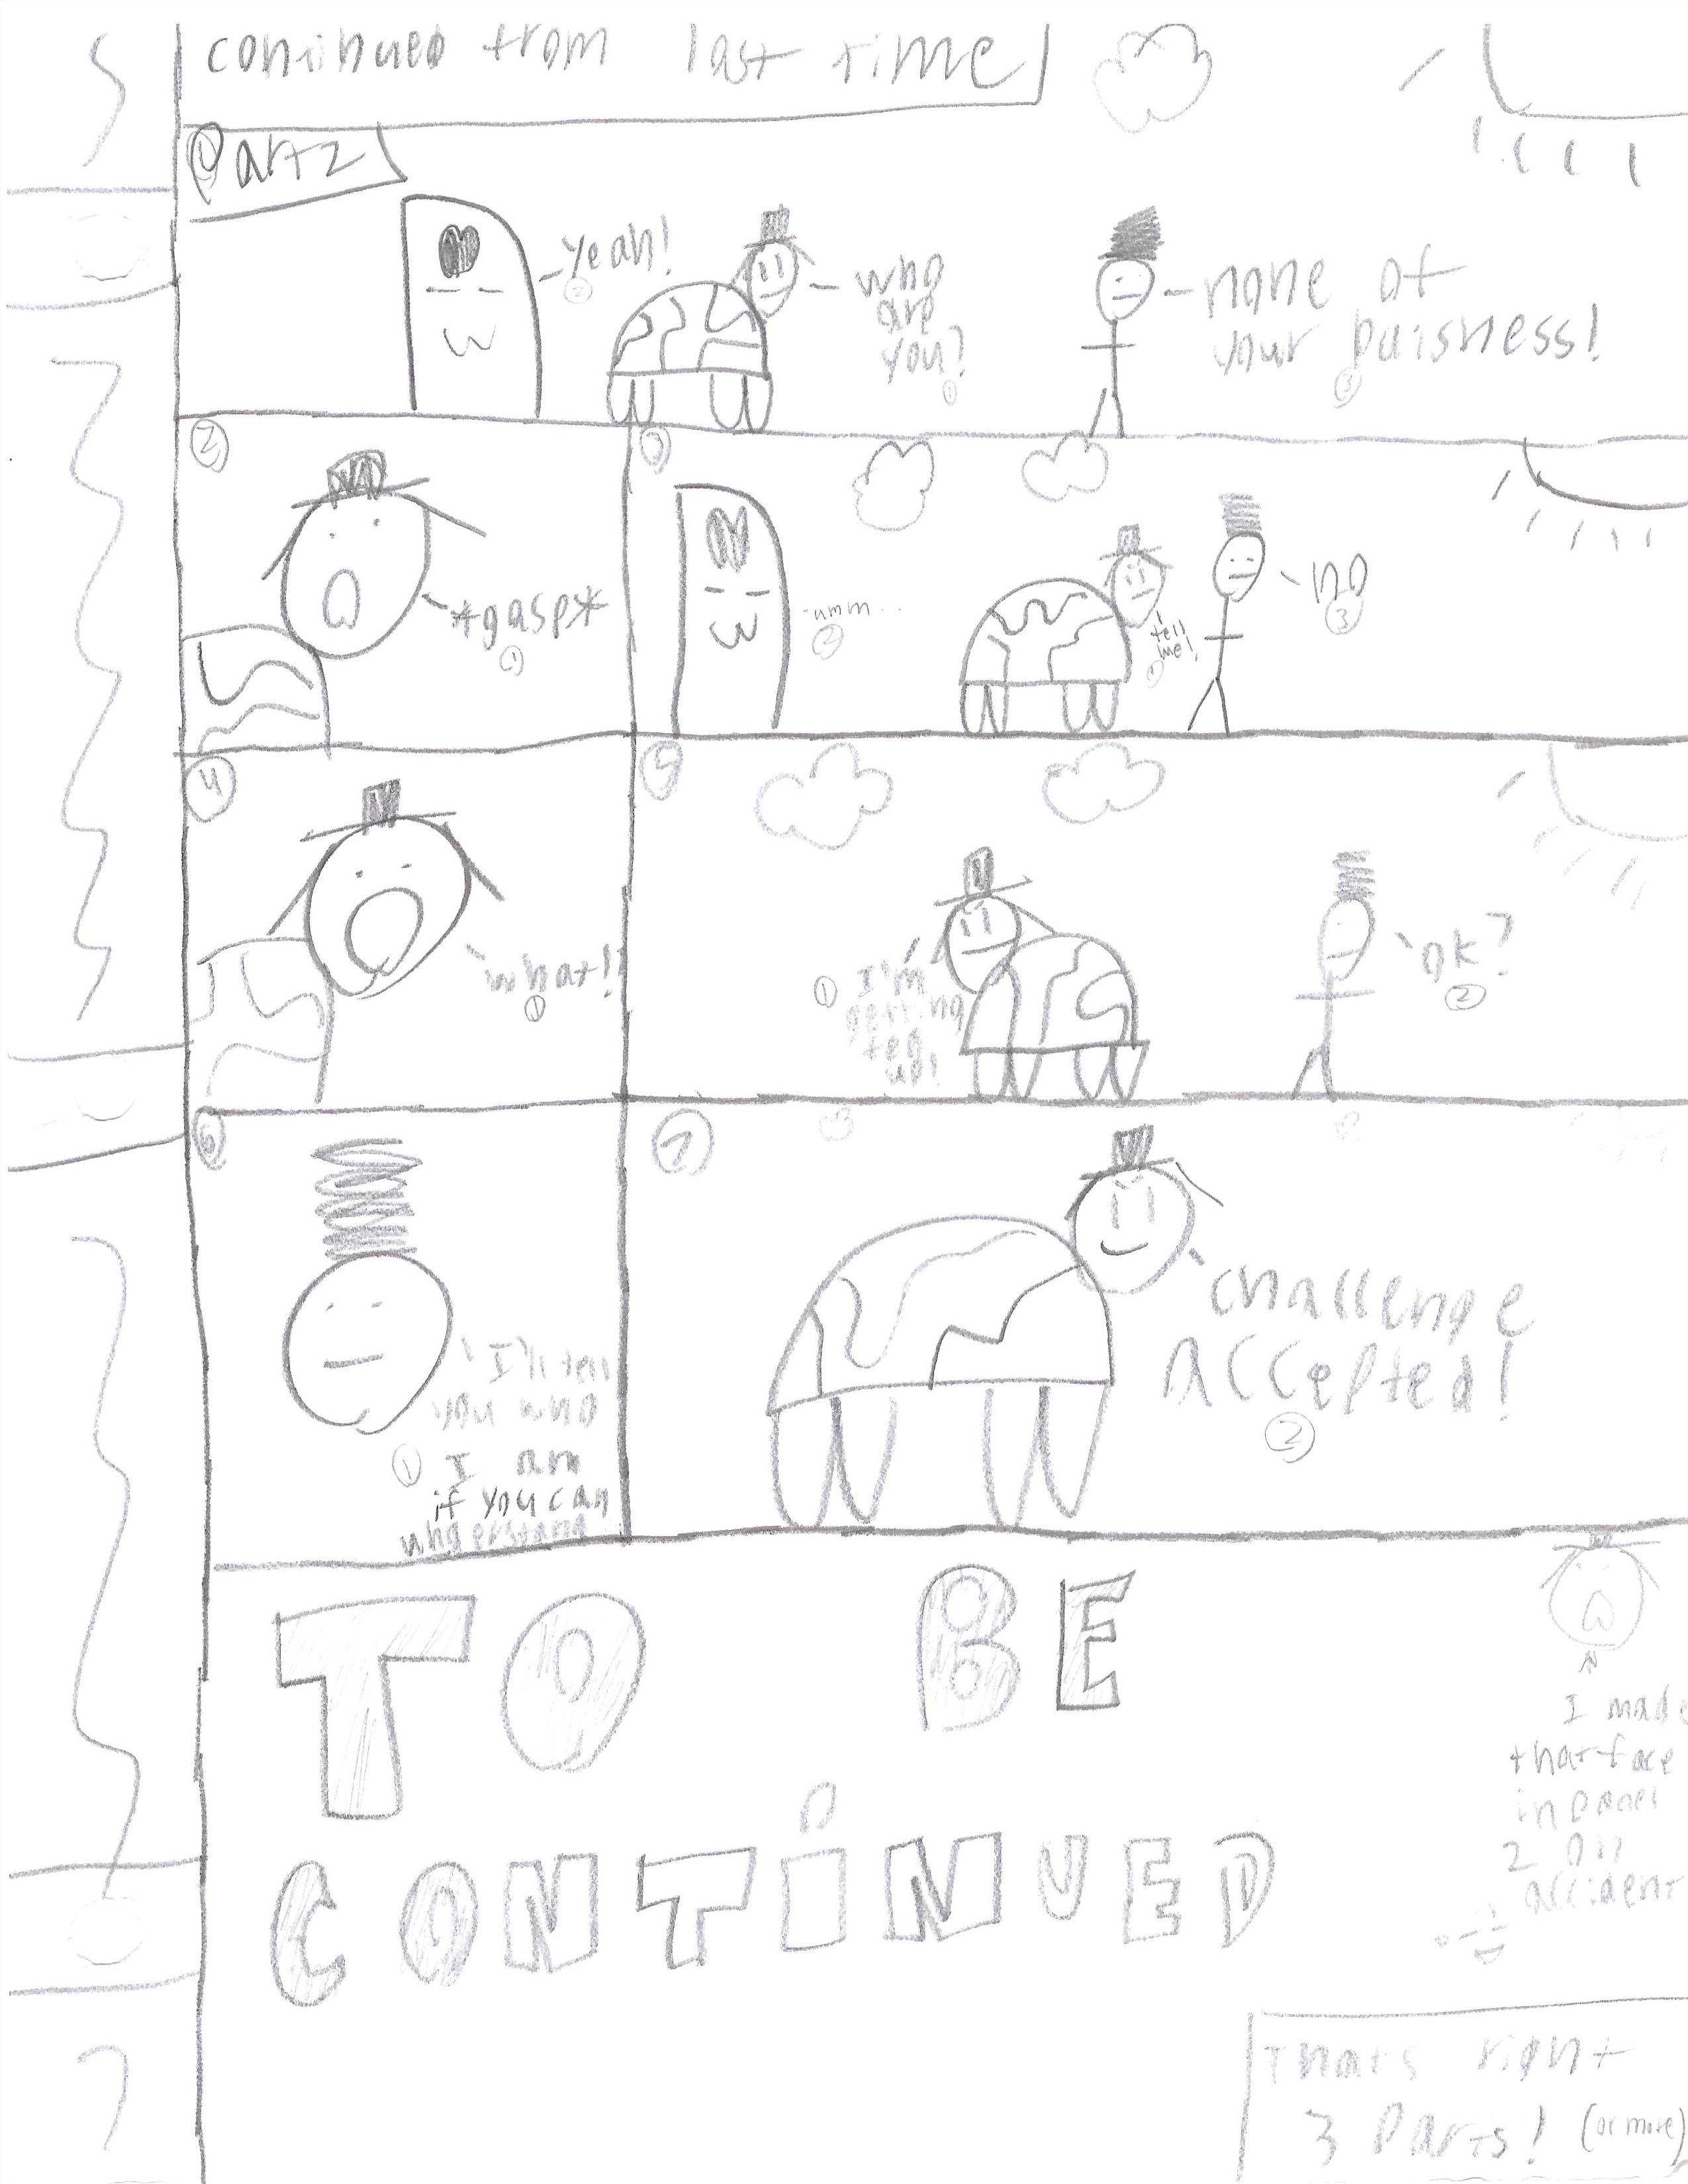 continued from last time
Part 2
1
-Yeah!
2
-who
are
you?
1
-none of
your buisness!
3
2
*gasp*
1
3
-umm...
2
tell
me!
1
no
3
4
what!!
1
5
1
I'm
getting
ted
up!
ok?
2
6
I'll tell
you who
1 I am
if you can
7
challenge
accepted!
2
TO BE
CONTiNUED
I made
that face
in panel
2 on
accident
thats right
3 Parts! (or more)